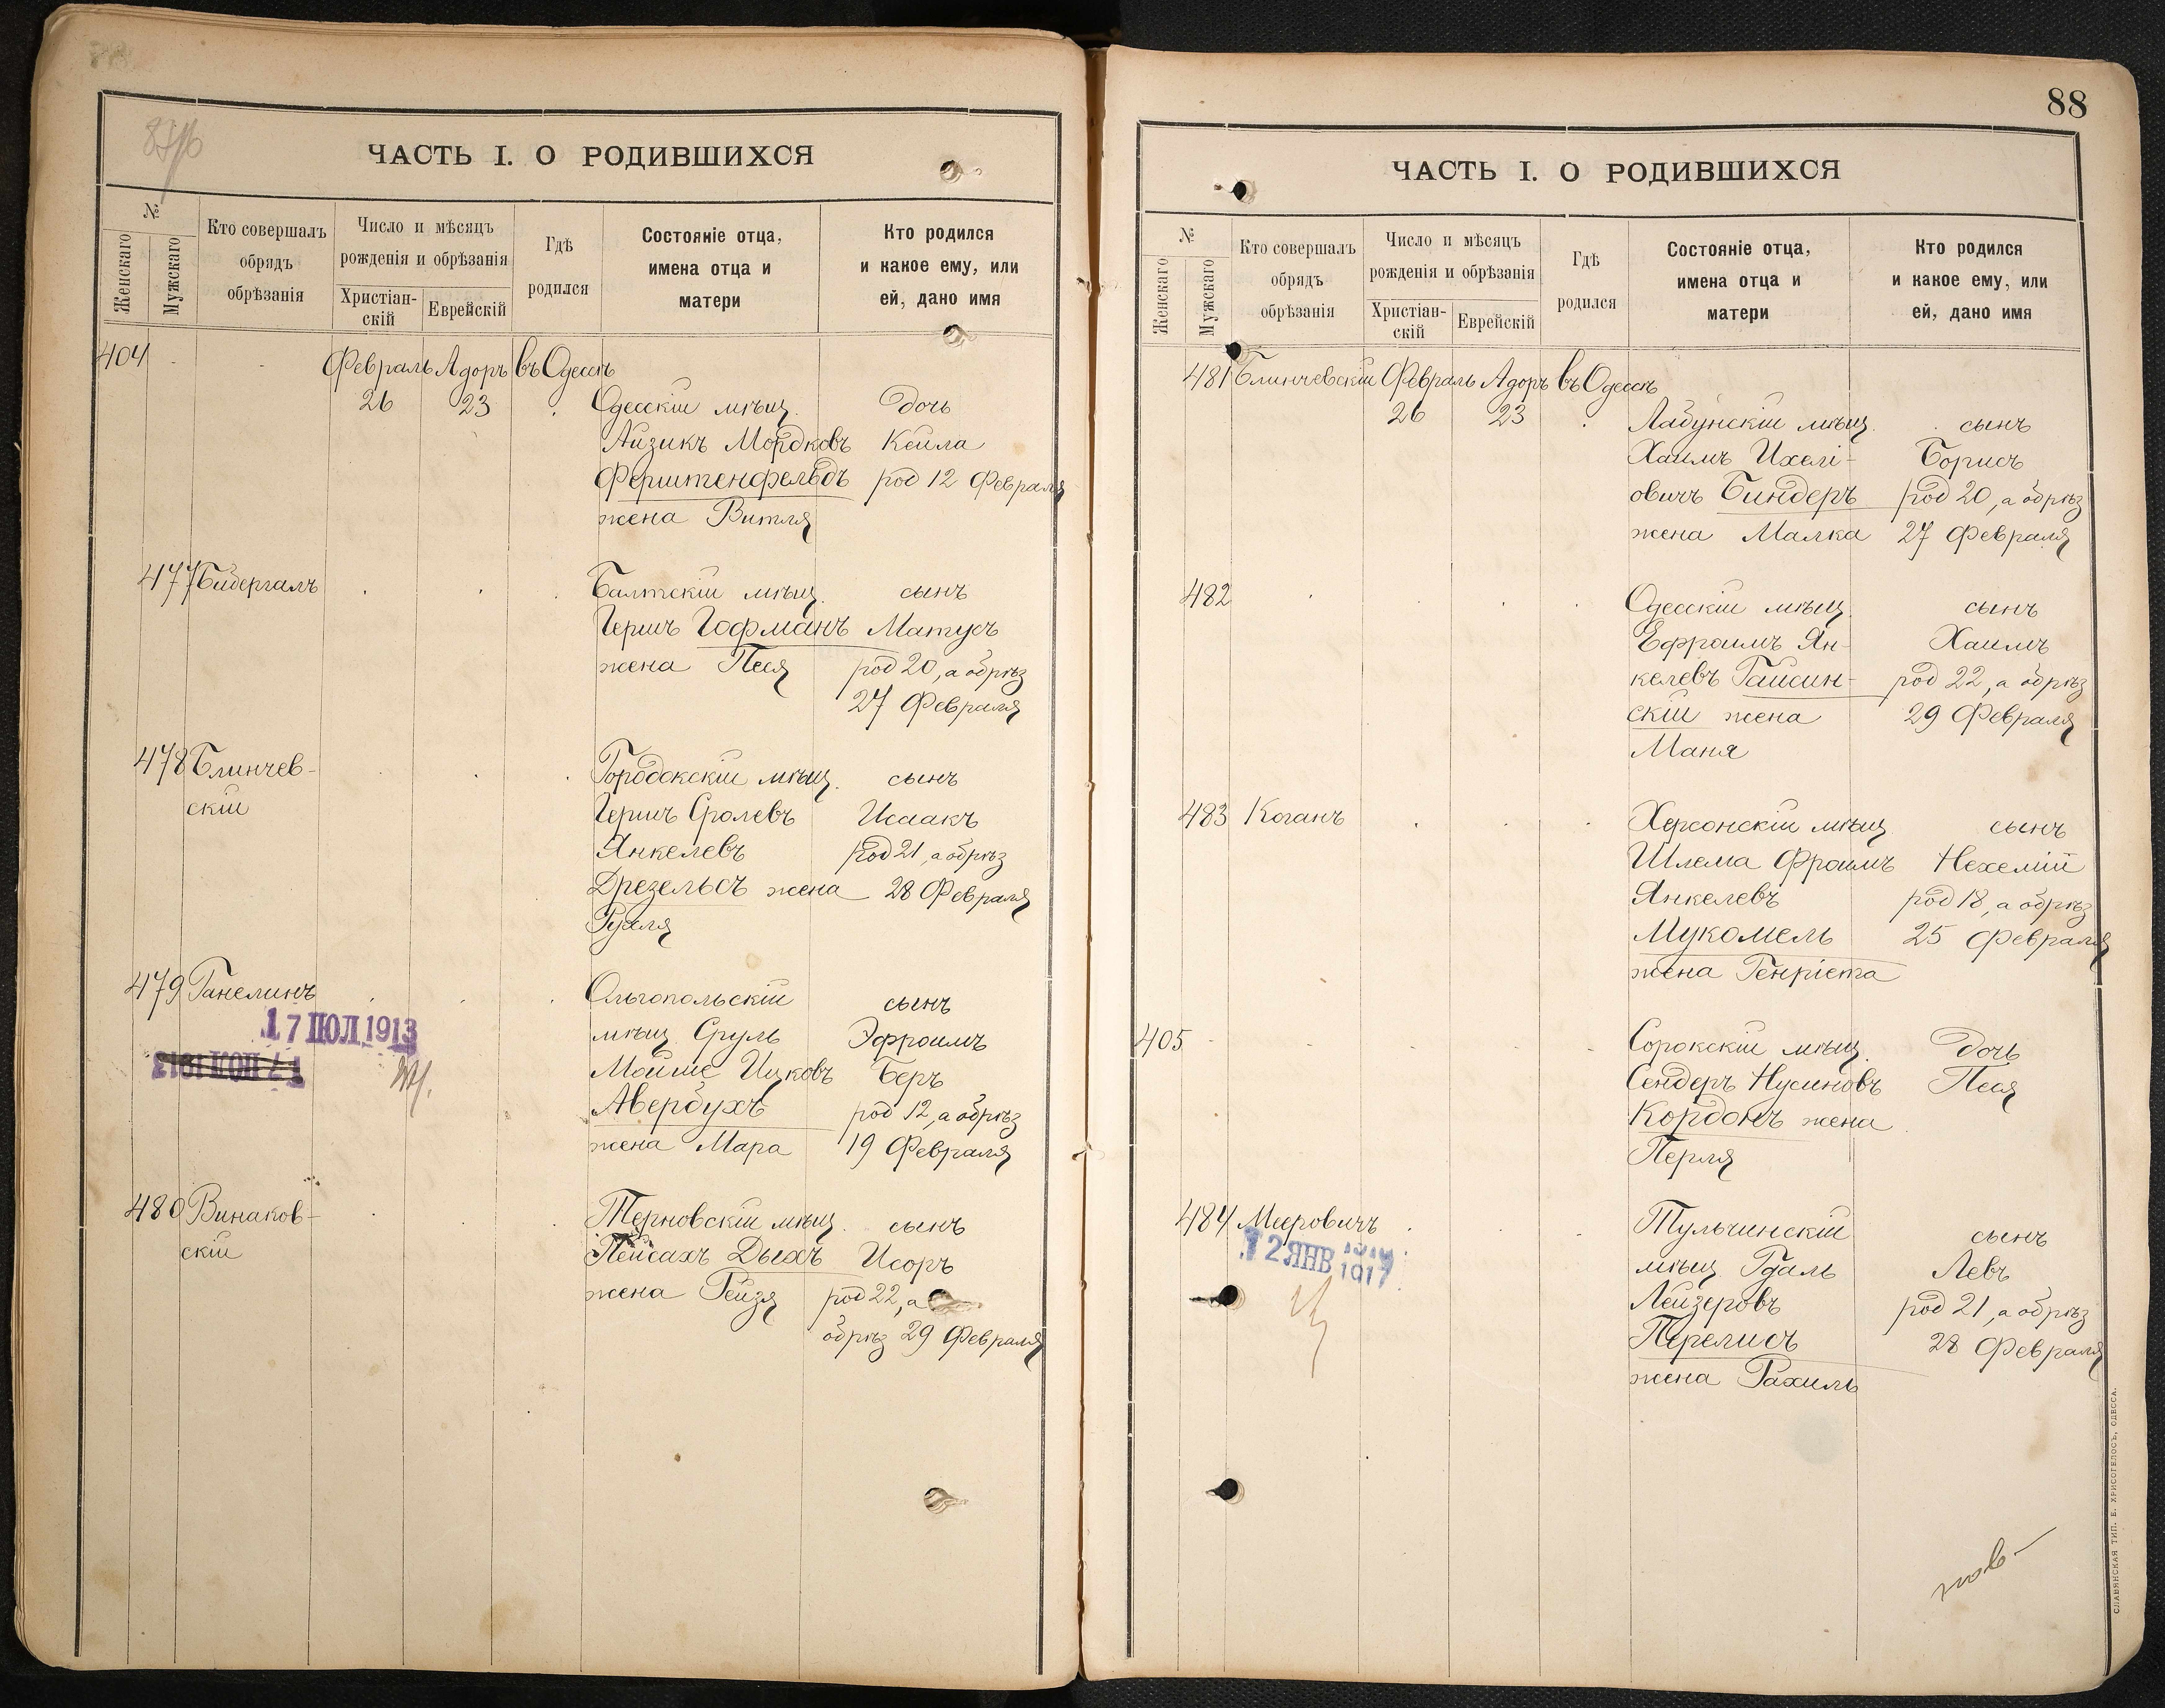 87/б
ЧАСТЬ I. О РОДИВШИХСЯ
№
Женскаго
Мужскаго
Кто совершалъ
обрядъ
обрѣзанія
Число и мѣсяцъ
рожденія и обрѣзанія
Христіан-
скій
Еврейскій
Гдѣ
родился
Состояніе отца,
имена отца и
матери
Кто родился
и какое ему, или
ей, дано имя
404 Февраль Адоръ въ Одессѣ
26 23 Одесскій мѣщ. дочь
Айзикъ Мордковъ Кейла
Ферштенфельдъ род 12 Февраля
жена Витля
477 Бидергалъ Балтскій мѣщ. сынъ
Гершъ Гофманъ Матусъ
жена Песя род 20, а обрѣз
27 Февраля
478 Блинчев- Городокскій мѣщ. сынъ
скій Гершъ Сролевъ Исаакъ
Янкелевъ род 21, а обрѣз
Дрезельсъ жена 28 Февраля
Рухля
479 Ганелинъ Ольгопольскій сынъ
17 ІЮЛ 1913 мѣщ. Сруль Эфроимъ
17 ІЮЛ 1913 Мойше Ицковъ Беръ
Авербухъ род 12, а обрѣз
жена Мара 19 Февраля
480 Винаков- Терновскій мѣщ. сынъ
скій Пейсахъ Дыхъ Исоръ
жена Рейзя род 22, а
обрѣз 29 Февраля
88
ЧАСТЬ I. О РОДИВШИХСЯ
№
Женскаго
Мужскаго
Кто совершалъ
обрядъ
обрѣзанія
Число и мѣсяцъ
рожденія и обрѣзанія
Христіан-
скій
Еврейскій
Гдѣ
родился
Состояніе отца,
имена отца и
матери
Кто родился
и какое ему, или
ей, дано имя
481 Блинчевскій Февраль Адоръ въ Одессѣ
26 23 Лабунскій мѣщ. сынъ
Хаимъ Ихелі- Борисъ
овичъ Биндеръ род 20, а обрѣз
жена Малка 27 Февраля
482 Одесскій мѣщ. сынъ
Ефроимъ Ян- Хаимъ
келевъ Гайсин- род 22, а обрѣз
скій жена 29 Февраля
Маня
483 Коганъ Херсонскій мѣщ сынъ
Шлема Фроимъ Нехемій
Янкелевъ род 18, а обрѣз
Мукомель 25 Февраля
жена Генріета
405 Сорокскій мѣщ. дочь
Сендеръ Нусиновъ Песя
Кордонъ жена
Перля
484 Мееровичъ Тульчинскій сынъ
12 ЯНВ 1917 мѣщ Гдаль Левъ
Лейзеровъ род 21, а обрѣз
Перелисъ 28 Февраля
жена Рахиль
СЛАВЯНСКАЯ ТИП. Е. ХРИСОГЕЛОСЪ, ОДЕССА.